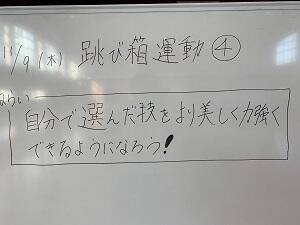 11/9(木) 跳び箱運動④
ねらい
自分で選んだ技をより美しく力強く
できるようになろう!